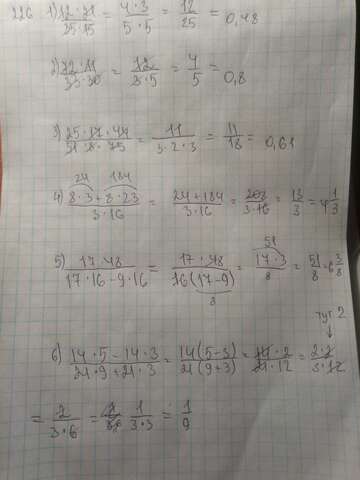 226 1) 12·21 / 35·15 = 4·3 / 5·5 = 12/25 = 0,48
2) 72·11 / 33·30 = 12 / 3·5 = 4/5 = 0,8
3) 25·17·44 / 51·8·75 = 11 / 3·2·3 = 11/18 = 0,61
24 184
4) 8·3+8·23 / 3·16 = 24+184 / 3·16 = 208 / 3·16 = 13/3 = 4 1/3
5) 17·48 / 17·16-9·16 = 17·48 / 16(17-9) = 17·3 / 8 = 51/8 = 6 3/8
51
8
тут 2
6) 14·5-14·3 / 21·9+21·3 = 14(5-3) / 21(9+3) = 14·2 / 21·12 = 2·2 / 3·12
= 2 / 3·6 = 1 / 3·3 = 1/9